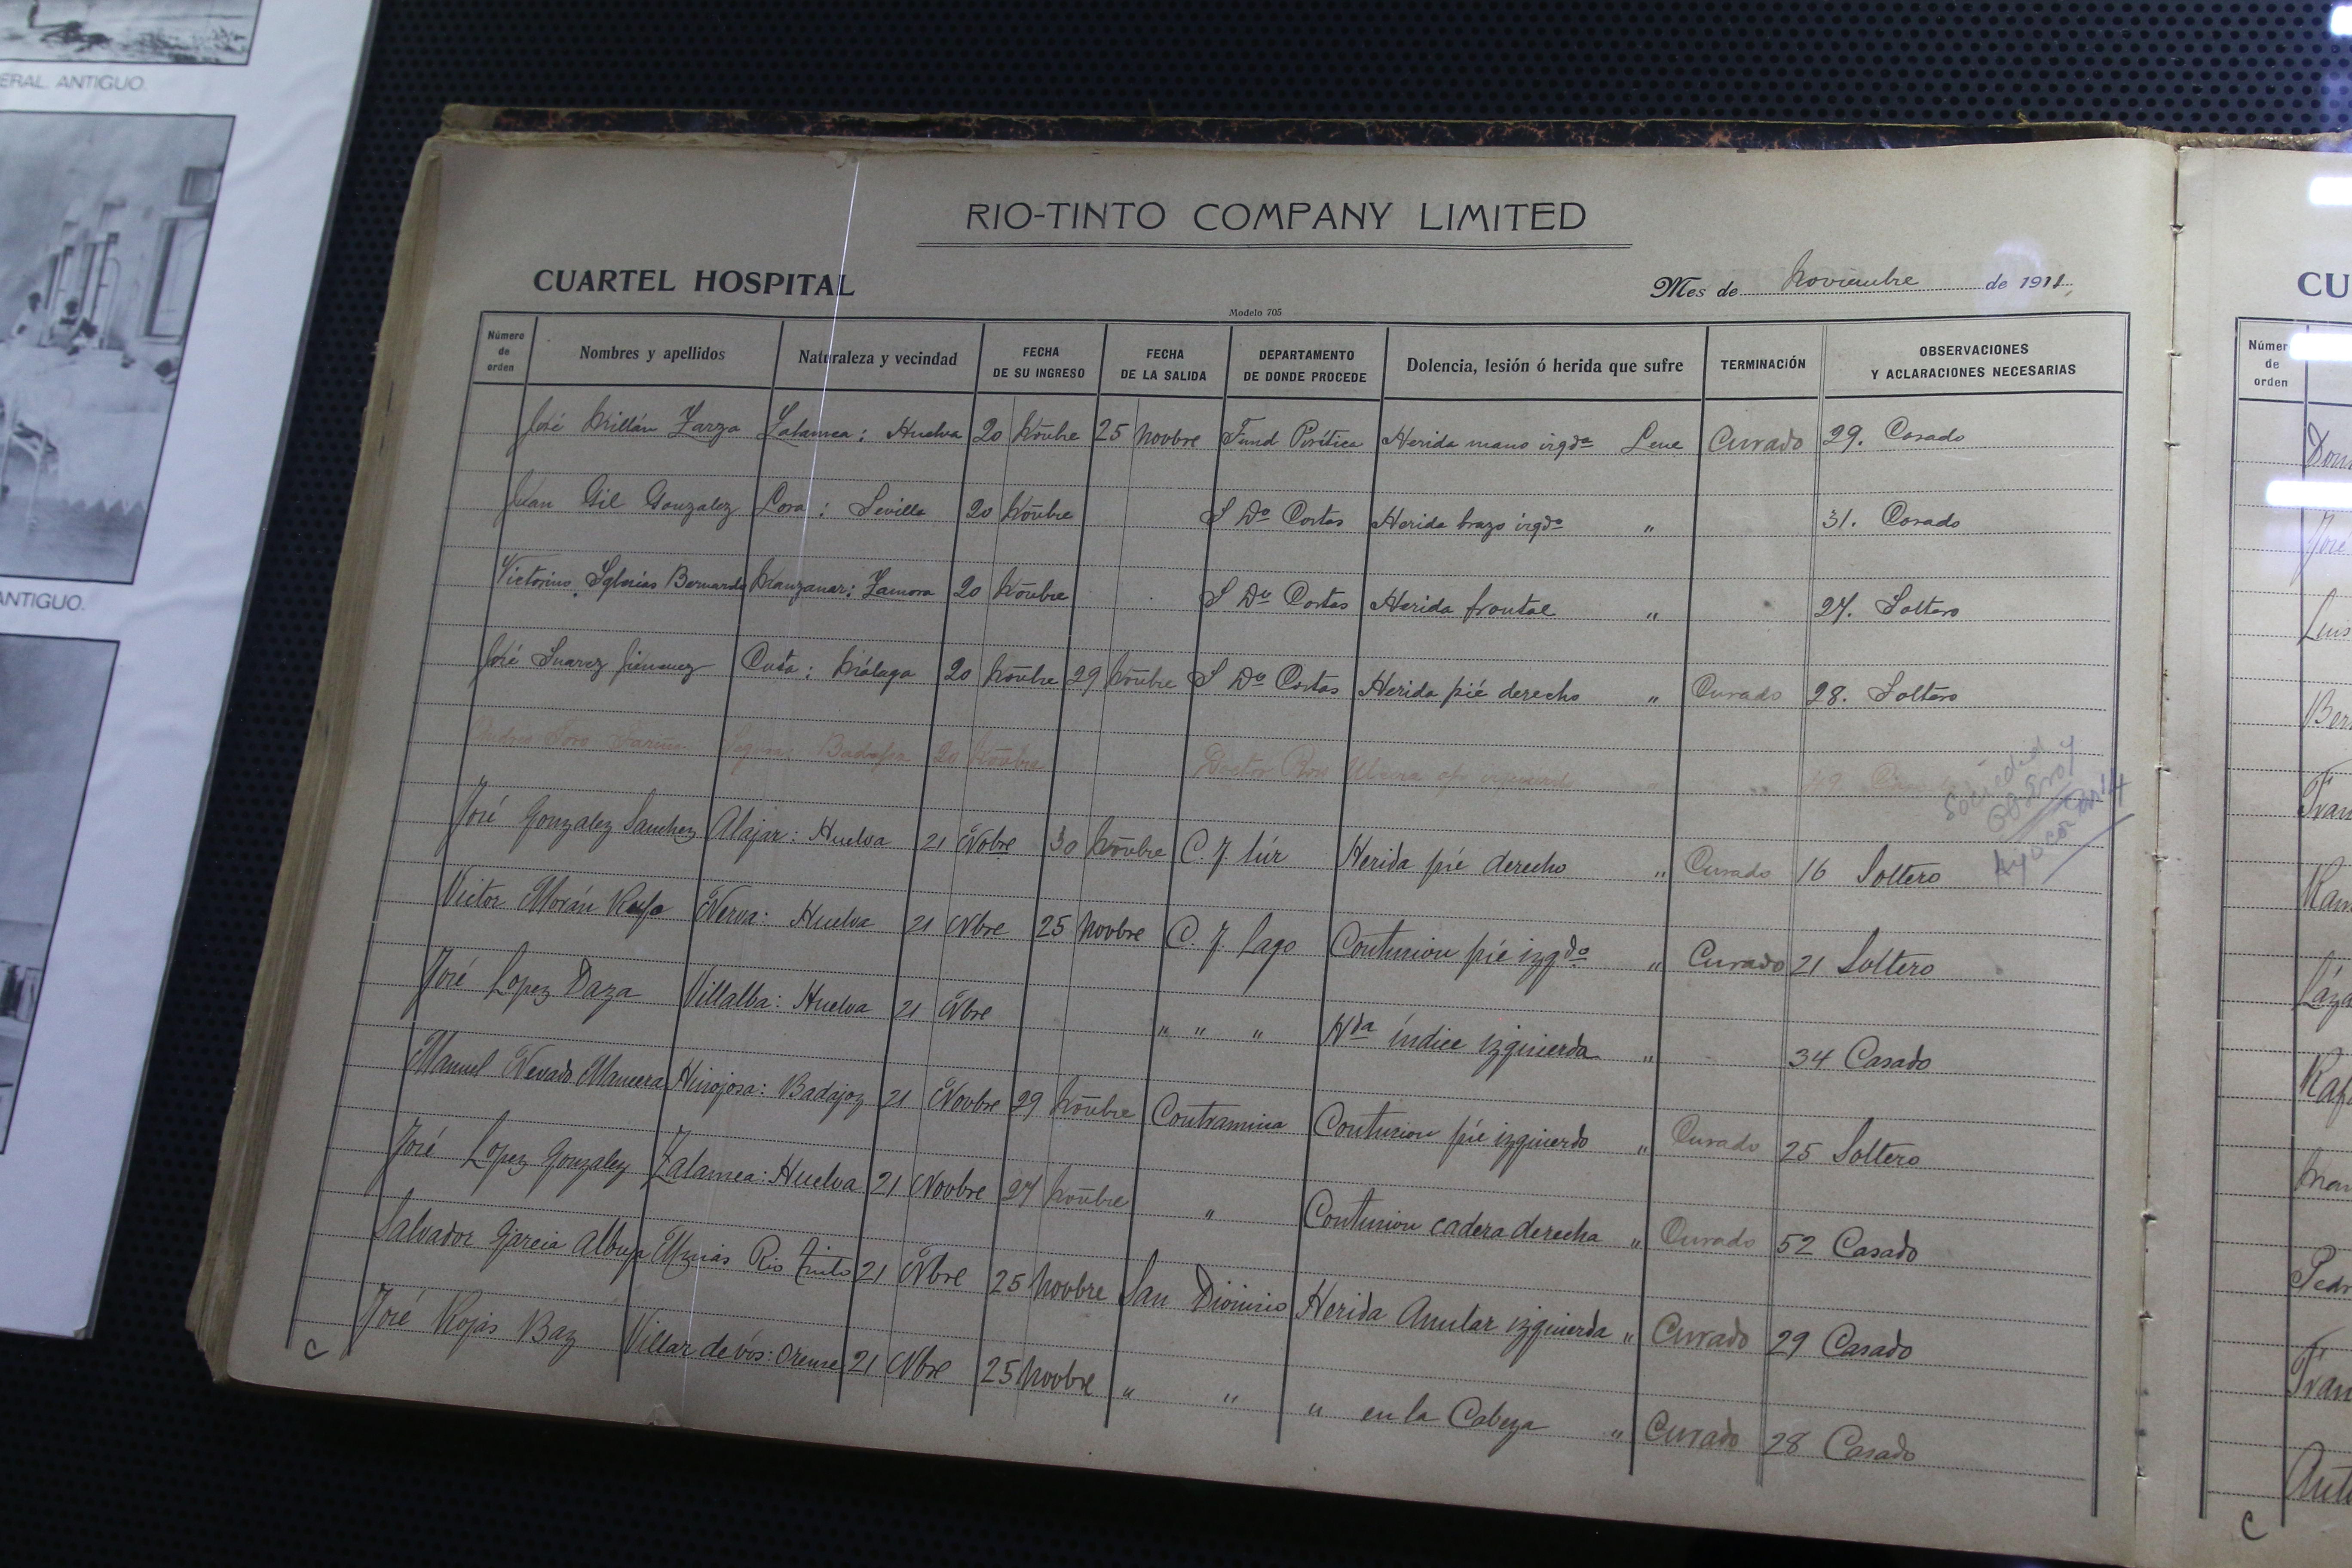 ERAL. ANTIGUO.
ANTIGUO.
RIO-TINTO COMPANY LIMITED
CUARTEL HOSPITAL
Mes de Noviembre de 1911.
Modelo 705
Número de orden Nombres y apellidos Naturaleza y vecindad FECHA DE SU INGRESO FECHA DE LA SALIDA DEPARTAMENTO DE DONDE PROCEDE Dolencia, lesión ó herida que sufre TERMINACIÓN OBSERVACIONES Y ACLARACIONES NECESARIAS
José Millán Zarza Zalamea: Huelva 20 Nōvbre 25 Novbre Fund Pirítica Herida mano izqdª Leve Curado 29. Casado
Juan Gil Gonzalez Lora: Sevilla 20 Nōvbre S Dº Cortas Herida brazo izqdº " 31. Casado
Victorino Iglesias Bernardo Manzanar: Zamora 20 Nōvbre S Dº Cortas Herida frontal " 27. Soltero
José Suarez Jimenez Málaga 20 Nōvbre 29 Nōvbre S Dº Cortas Herida pié derecho " Curado 28. Soltero
Badajoz 20 Nōvbre
José Gonzalez Sanchez Alajar: Huelva 21 Nobre 30 Nōvbre C. J. Sur Herida pié derecho " Curado 16 Soltero
Victor Morán Nerva: Huelva 21 Nbre 25 Novbre C. J. Lago Contusion pié izqdº " Curado 21 Soltero
José Lopez Daza Villalba: Huelva 21 Nbre " " " Hdª índice izquierda " 34 Casado
Manuel Nevado Mancera Hinojosa: Badajoz 21 Novbre 29 Nōvbre Contramina Contusion pié izquierdo " Curado 25 Soltero
José Lopez Gonzalez Zalamea: Huelva 21 Novbre 27 Nōvbre " Contusion cadera derecha " Curado 52 Casado
Salvador Garcia Minas Rio Tinto 21 Nbre 25 Novbre San Dionisio Herida Anular izquierda " Curado 29 Casado
José Rojas Baz Villar de vós: Orense 21 Nbre 25 Novbre " " " en la Cabeza " Curado 28 Casado
C
CU
Númer
de
orden
José
Luis
C